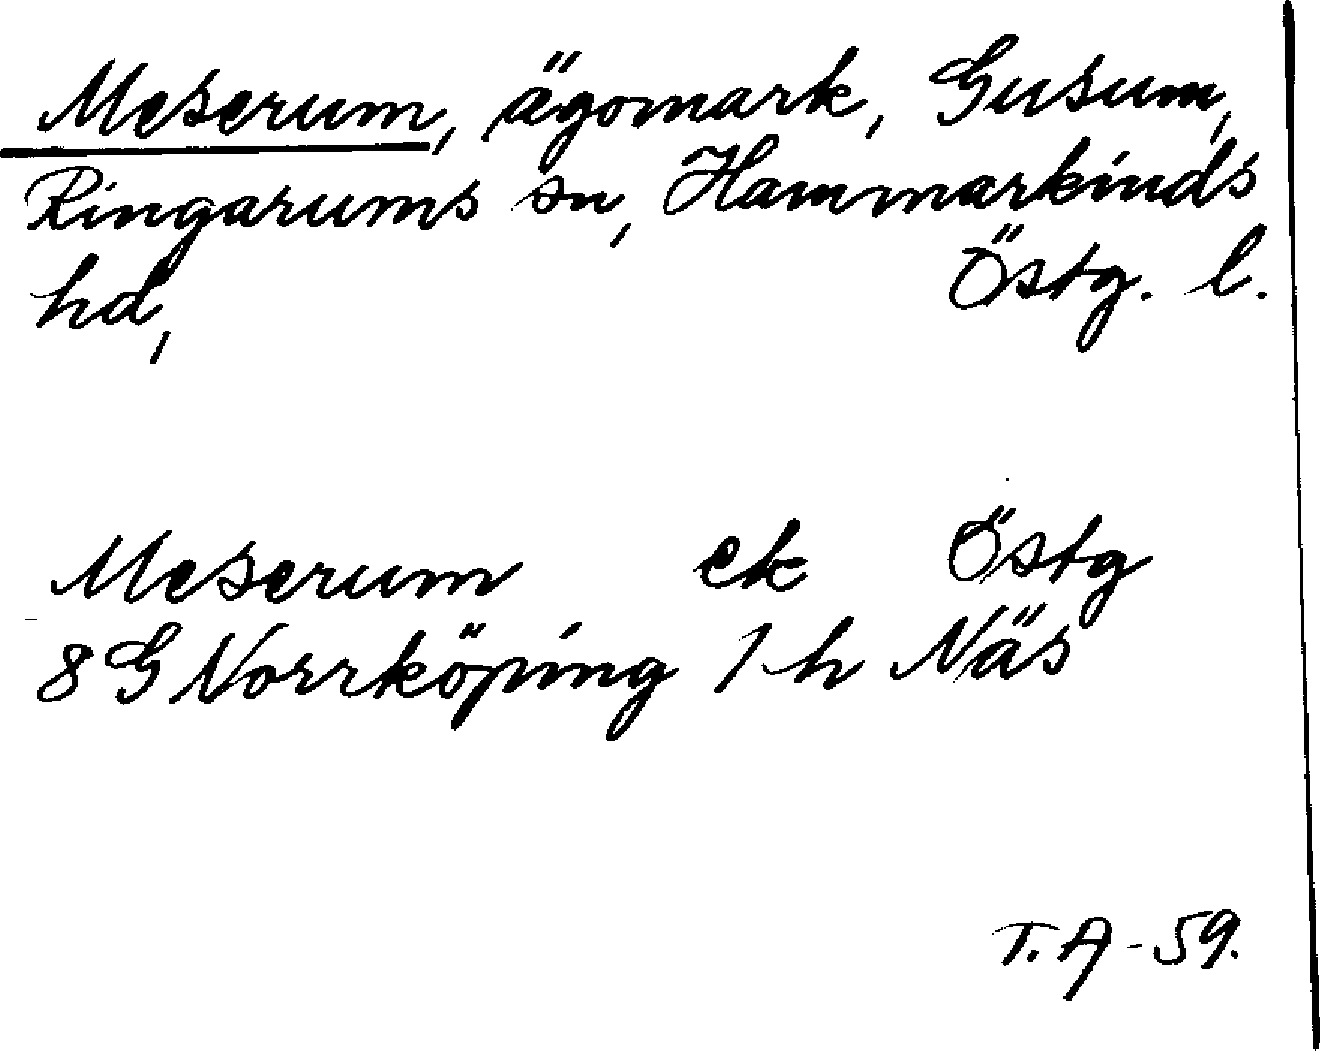 Meserum, ägomark, Gusum,
Ringarums sn, Hammarkinds
hd, Östg. l.
Meserum ek Östg
8G Norrköping 1 h Näs
T.A-59.